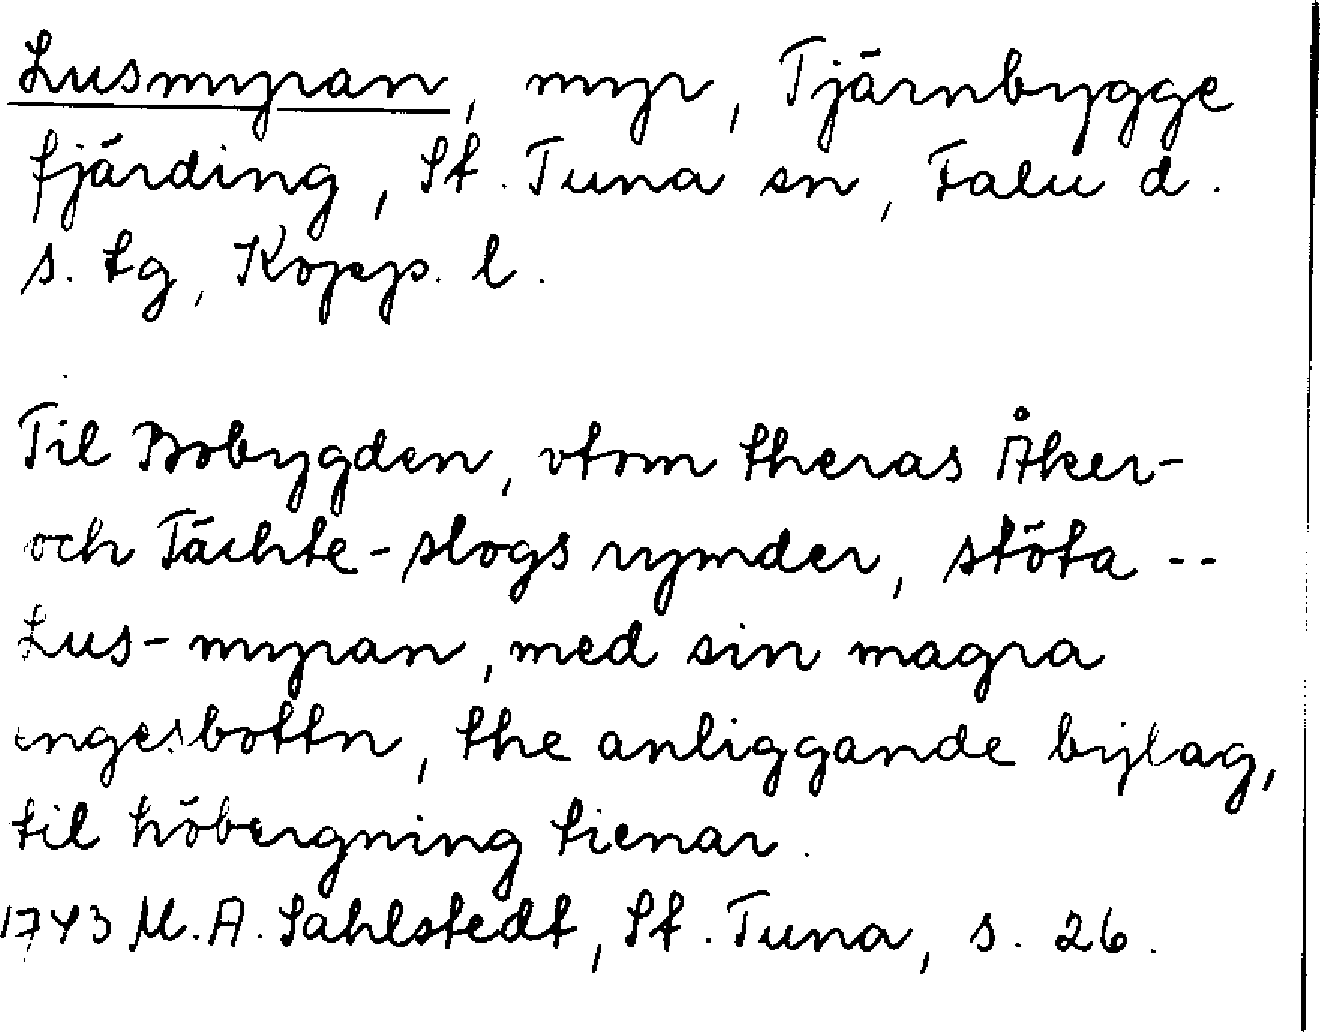 Lusmyran, myr, Tjärnbygge
fjärding, St. Tuna sn, Falu d.
s. tg, Kopp. l.
Til Bobygden, vtom theras Åker-
och Tächte-slogs rymder, stöta --
Lus-myran, med sin magra
engesbottn, the anliggande bylag,
til höbergning tienar.
1743 M. A. Sahlstedt, St. Tuna, s. 26.